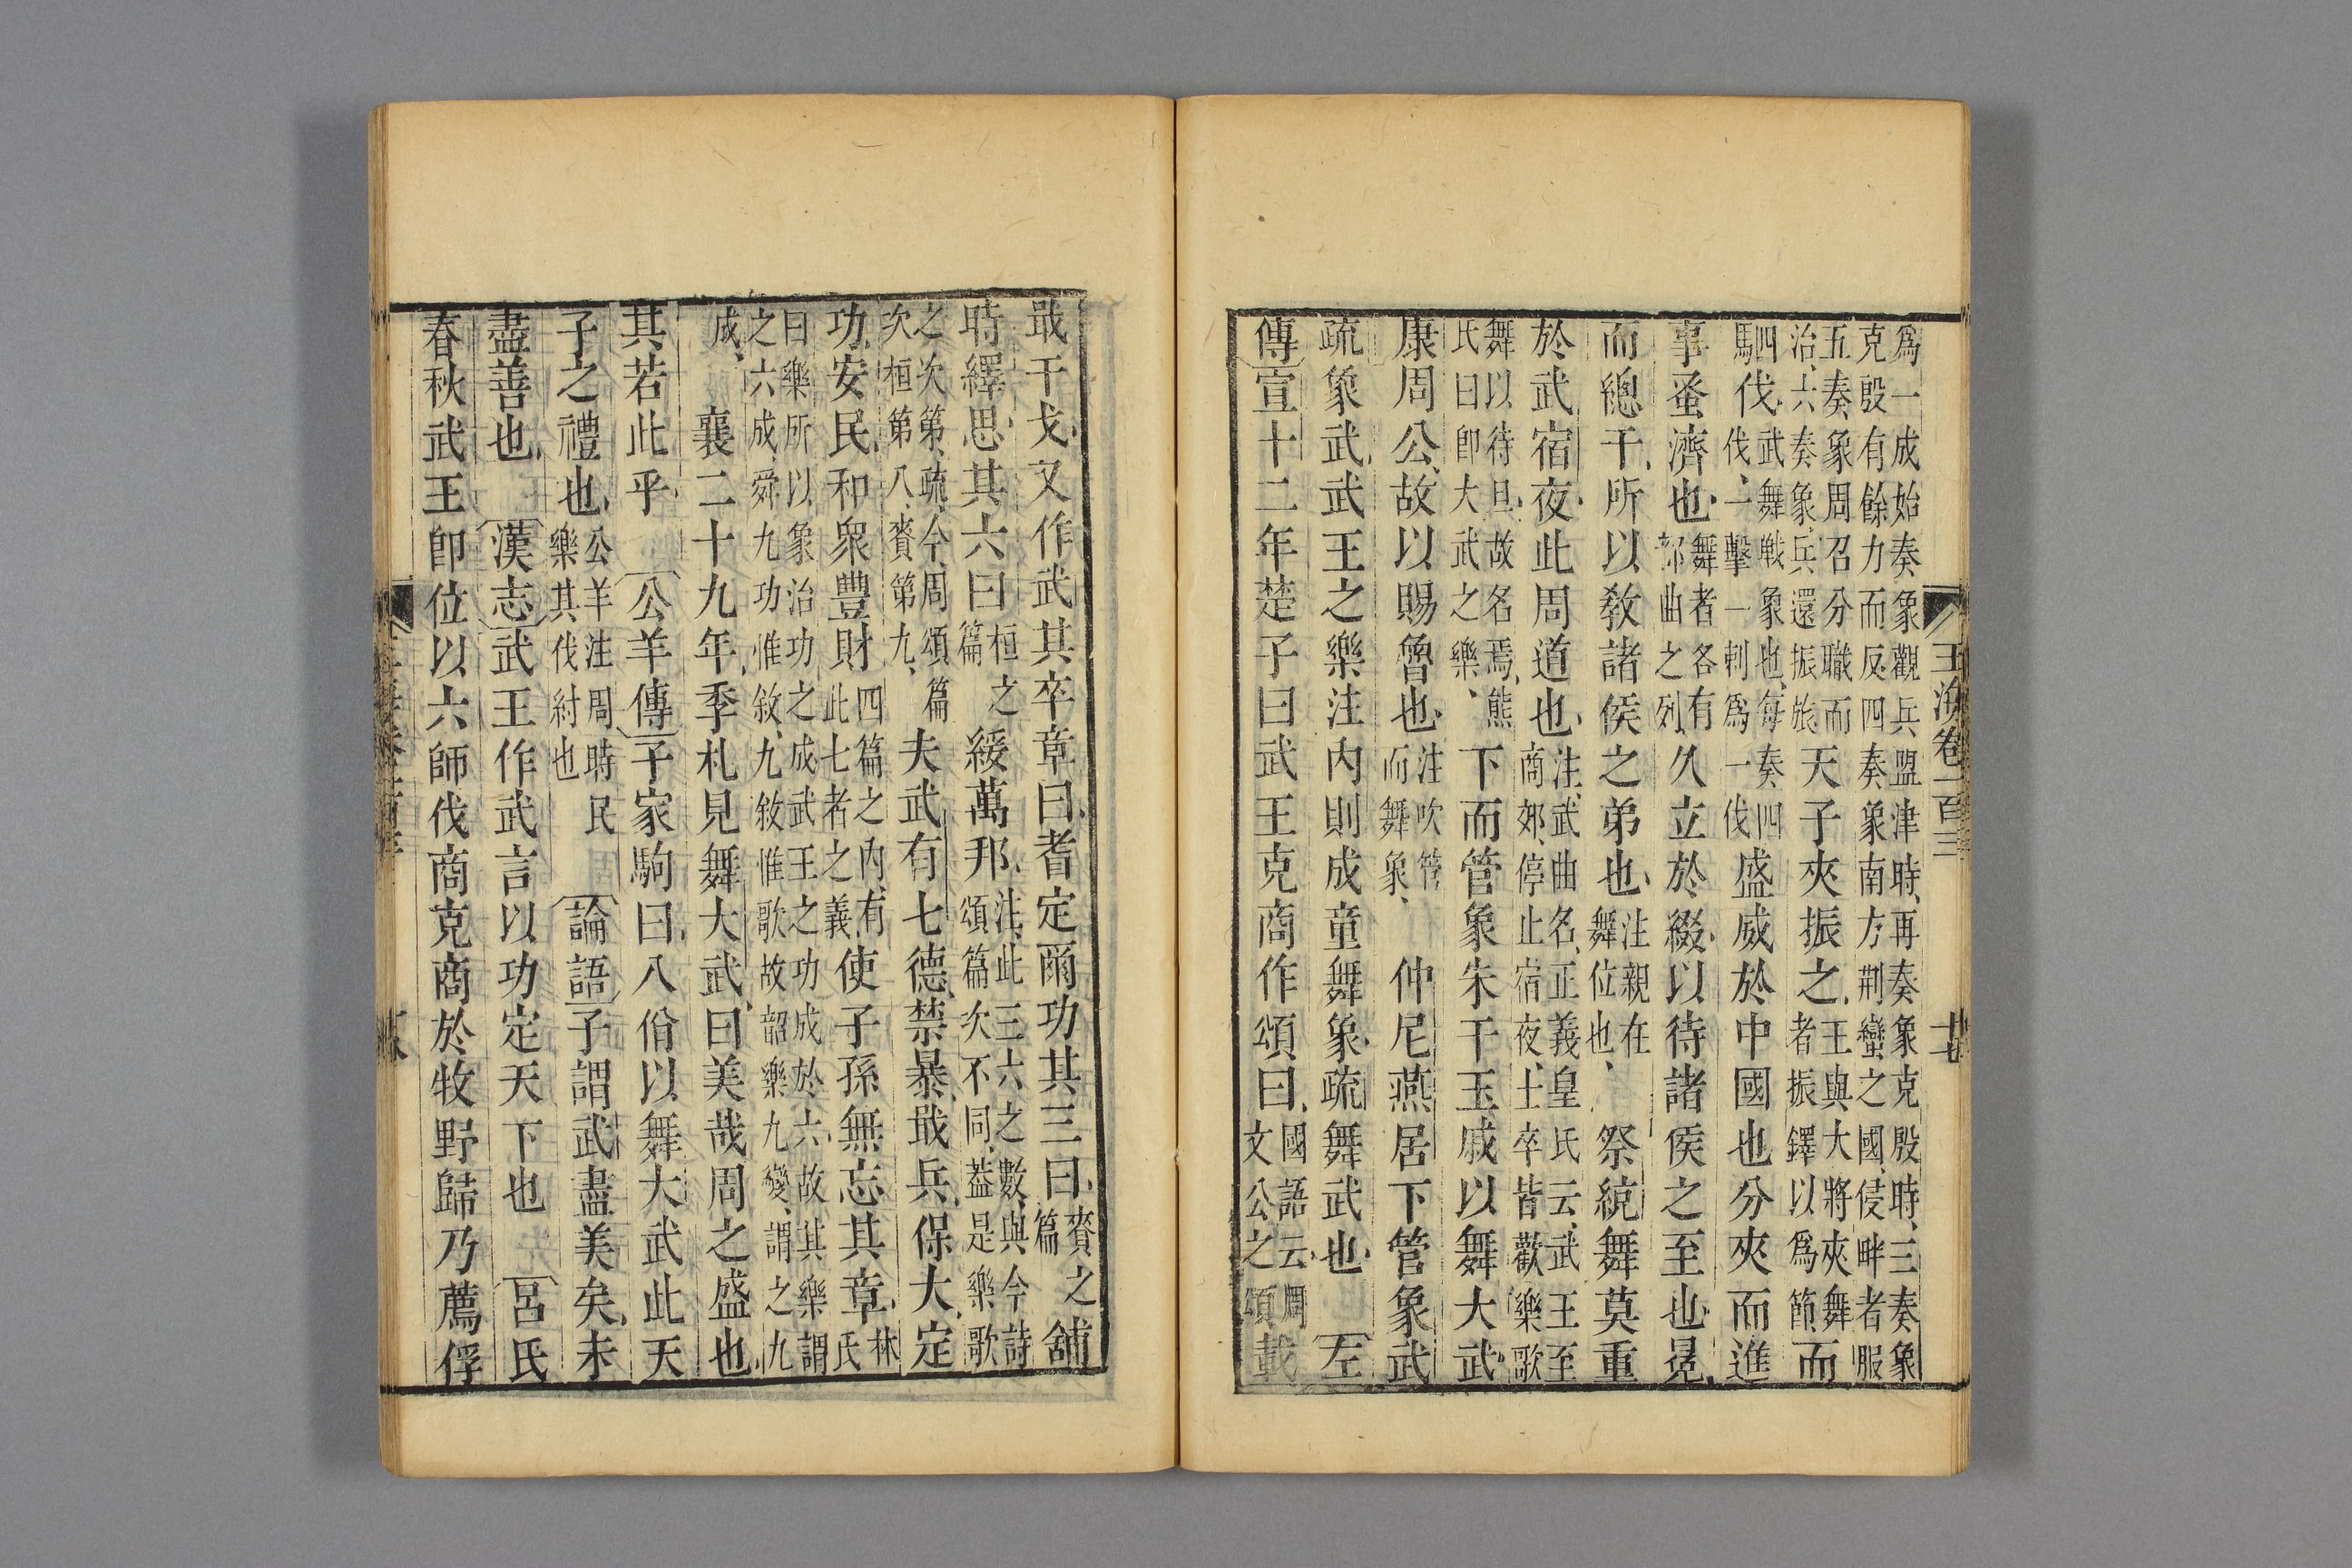 爲一成始奏象觀兵盟津時再奏象克殷時三奏象
克殷有餘力而反四奏象南方荆蠻之國侵畔者服
五奏象周召分職而
治六奏象兵還振旅天子夾振之王與大將夾舞
者振鐸以爲節而
四伐武舞戰象也每奏四
駟伐伐一擊一刺爲一伐盛威於中國也分夾而進
事蚤濟也舞者各有
部曲之列久立於綴以待諸侯之至也冕
而總干所以敎諸侯之弟也注親在
舞位也祭統舞莫重
於武宿夜此周道也注武曲名正義皇氏云武王至
商郊停止宿夜士卒皆歡樂歌
舞以待旦故名焉熊
氏曰卽大武之樂下而管象朱干玉戚以舞大武
康周公故以賜魯也注吹管
而舞象仲尼燕居下管象武
疏象武武王之樂注內則成童舞象疏舞武也左
傳宣十二年楚子曰武王克商作頌曰國語云周
文公之頌載
戢干戈又作武其卒章曰耆定爾功其三曰賚之
篇舖
時繹思其六曰桓之
篇綏萬邦注此三六之數與今詩
頌篇次不同蓋是樂歌
之次第疏今周頌篇
次桓第八賚第九夫武有七德禁暴戢兵保大定
功安民和衆豐財四篇之內有
此七者之義使子孫無忘其章林
氏
曰樂所以象治功之成武王之功成於六故其樂謂
之六成舜九功惟敘九敘惟歌故韶樂九變謂之九
成襄二十九年季札見舞大武曰美哉周之盛也
其若此乎公羊傳子家駒曰八佾以舞大武此天
子之禮也公羊注周時民
樂其伐紂也論語子謂武盡美矣未
盡善也漢志武王作武言以功定天下也呂氏
春秋武王卽位以六師伐商克商於牧野歸乃薦俘
玉海卷一百三